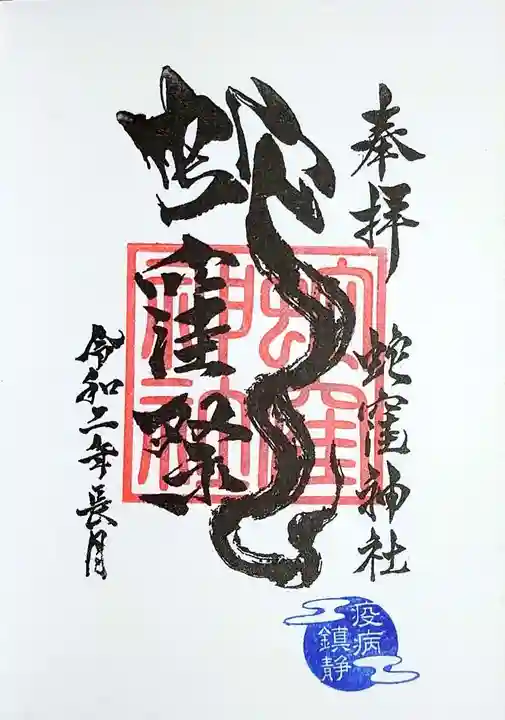 奉拝
蛇窪神社
蛇窪祭
令和二年長月
蛇窪
神社
疫病
鎮静